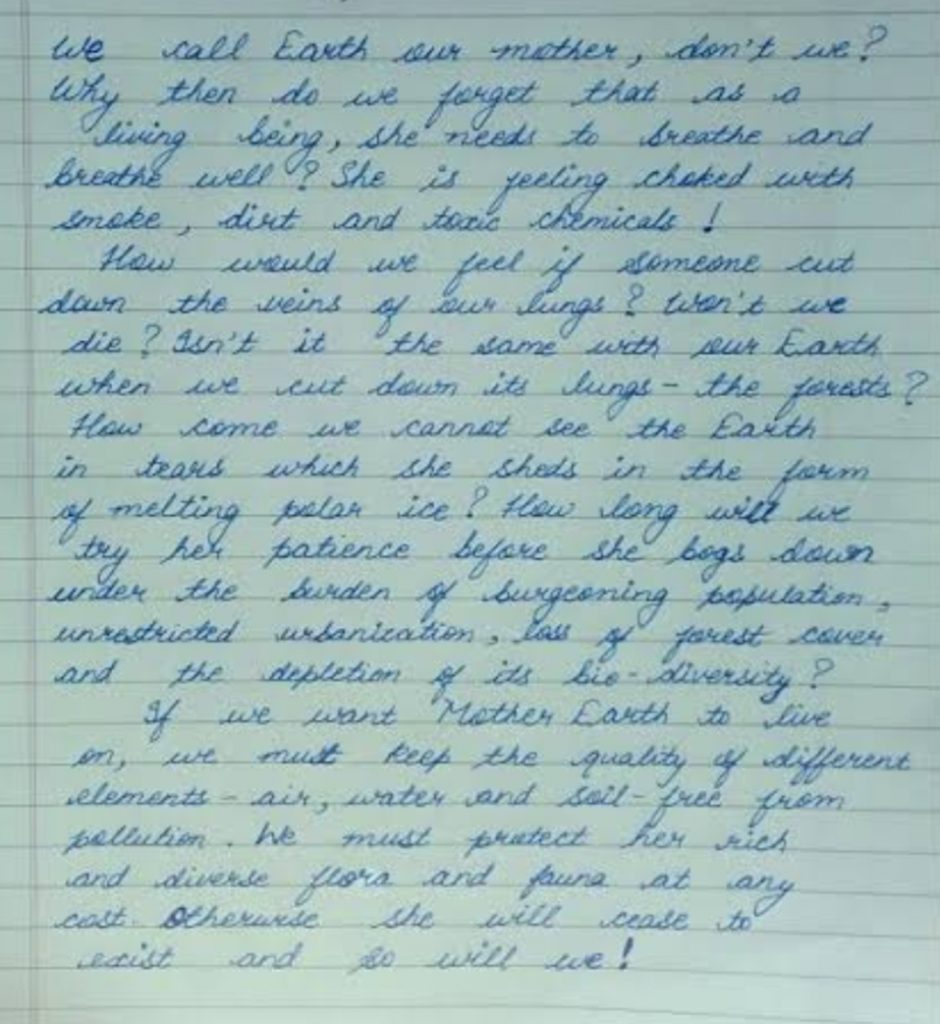 We call Earth our mother, don't we?
Why then do we forget that as a
living being, she needs to breathe and
breathe well? She is feeling choked with
smoke, dirt and toxic chemicals!
How would we feel if someone cut
down the veins of our lungs? Won't we
die? Isn't it the same with our Earth
when we cut down its lungs - the forests?
How come we cannot see the Earth
in tears which she sheds in the form
of melting polar ice? How long will we
try her patience before she bogs down
under the burden of burgeoning population,
unrestricted urbanization, loss of forest cover
and the depletion of its bio-diversity?
If we want Mother Earth to live
on, we must keep the quality of different
elements - air, water and soil - free from
pollution. We must protect her rich
and diverse flora and fauna at any
cost. Otherwise she will cease to
exist and so will we!